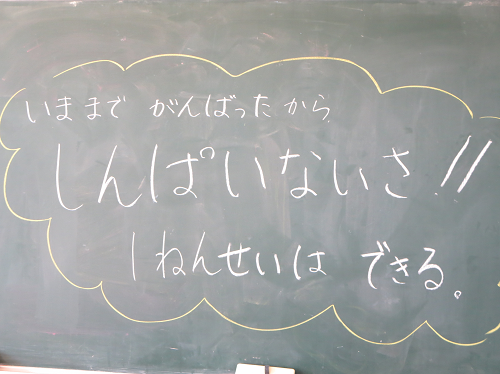 いままで がんばったから
しんぱいないさ!!
1ねんせいは できる。